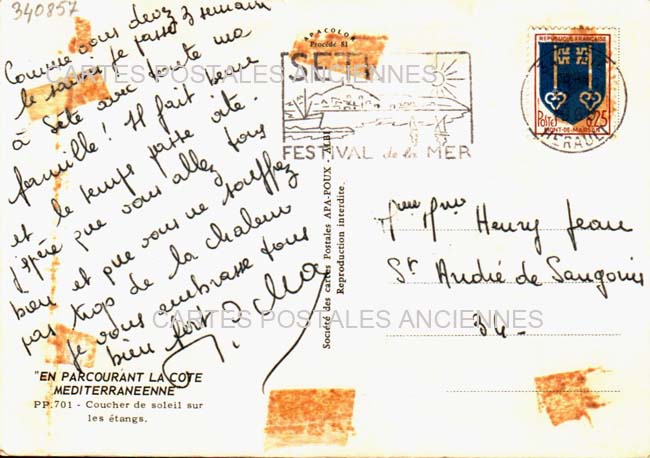 340857
Comme vous devez
le savoir je passe 3 semain
à Sète avec toute ma
famille! Il fait beau
et le temps passe vite.
J'espère que vous allez tous
bien et que vous ne souffrez
pas trop de la chaleur
je vous embrasse tous
bien fort
APACOLOR
Procédé 81
SETE
FESTIVAL de la MER
REPUBLIQUE FRANÇAISE
POSTES 0,25
MONT-DE-MARSAN
HERAULT
Société des cartes Postales APA-POUX ALBI
Reproduction interdite.
Henry Jean
St André de Sangonis
34-
"EN PARCOURANT LA COTE
MEDITERRANEENNE"
PP.701 - Coucher de soleil sur
les étangs.
CARTES POSTALES ANCIENNES
CARTES POSTALES ANCIENNES